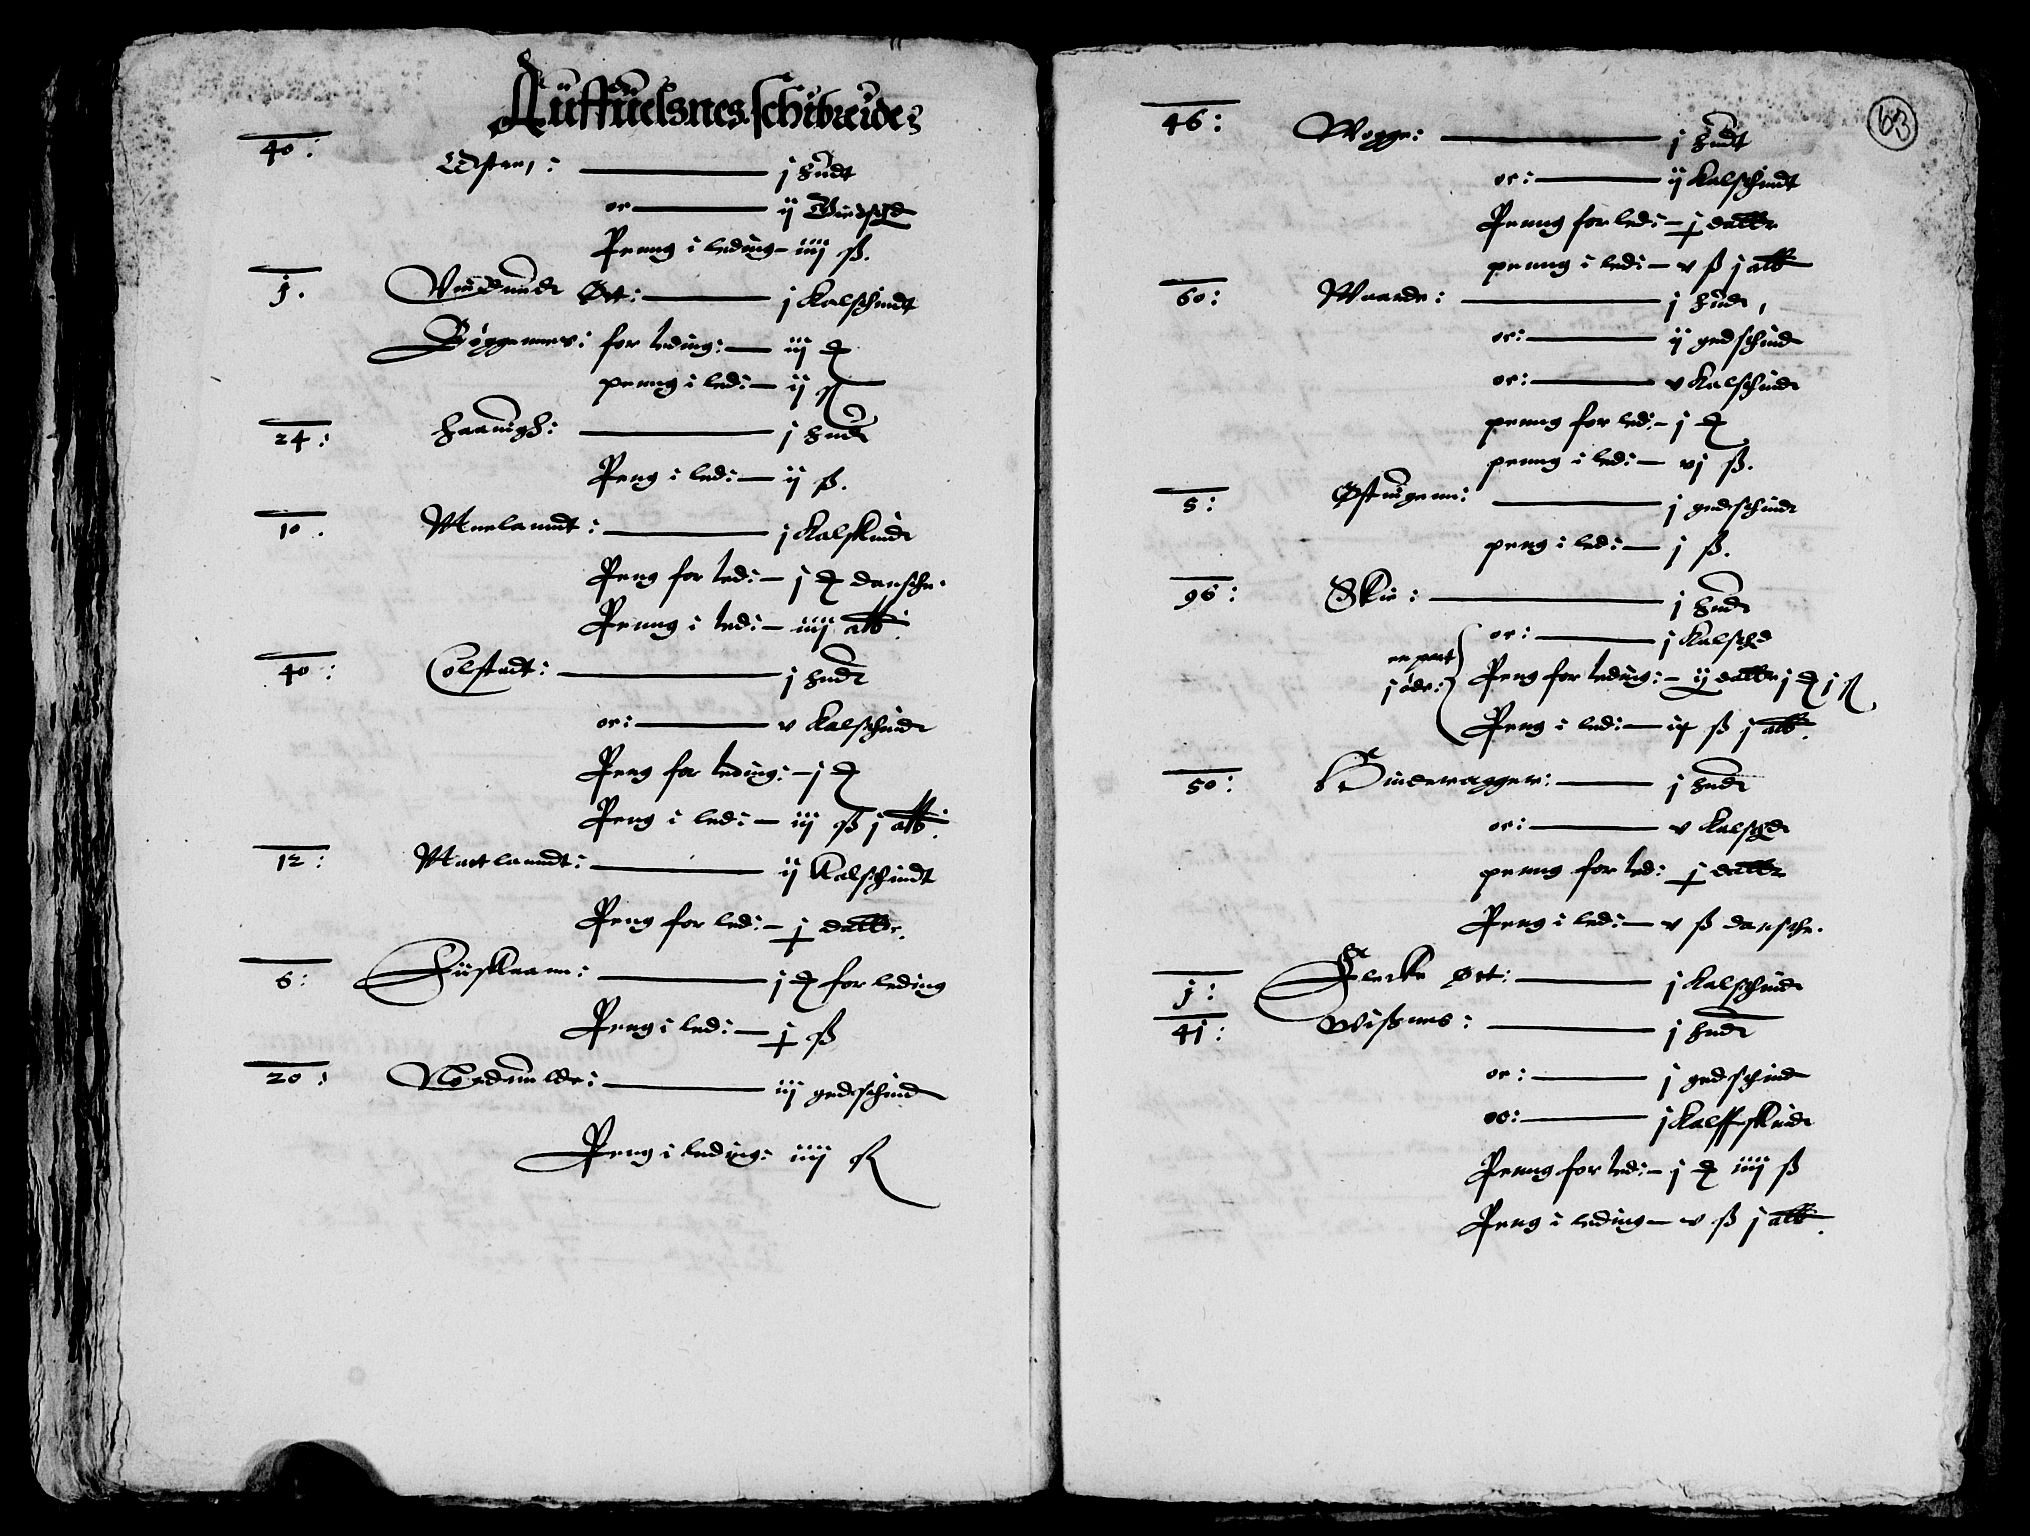 Auffuelsnes schibreide
40: Østen: j hudt
or ij Buckschd
Penng i leding iiij ß.
j. Vindund Øt: j Kalschindt
Böggennes: for leding: iij
penng i ledi: ij ß
24: Haauigh: j hudt
Peng i ledi: ij ß.
10. Meelanndt: j Kalskindt
Peng for ledi: j dansche.
Penng i ledi: iiij alb.
40: Colstadt: j hudt
or: v Kalschindt
Peng for leding: j
Peng i ledi: iij ß j alb.
12: Mattlanndt: ij Kalschindt
Peng for ledi: j daller.
6: Füskaann: j for leding
Peng i ledi: j ß
20: Nordmelde: iij gedschind
Peng i leding: iiij ß
63
46: Wogge: j hudt
or: ij Kalschindt
Penng for ledi: j daller
penng i ledi: v ß j alb
60: Waarde: j hudt
or: ij gedschind
or: v Kalschindt
penng for ledi: j
penng i ledi: vj ß.
5: Østuigenn: j gedschindt
peng i ledi: j ß.
96: Skie: j hudt
or: j Kalschd
en part j øde: Peng for leding: ij daller j j ß
Peng i ledi: ix ß j alb.
50: Hinderagger: j hudt
or: v Kalschd
penng for led: j daller
Peng i ledi: v ß dansche.
j: Flecke Øtt: j Kalschindt
41: Wißnes: j hudt
or: j gedschind
or: j Kalffskindt
Penng for ledi: j iiij ß
Peng i leding v ß j alb.